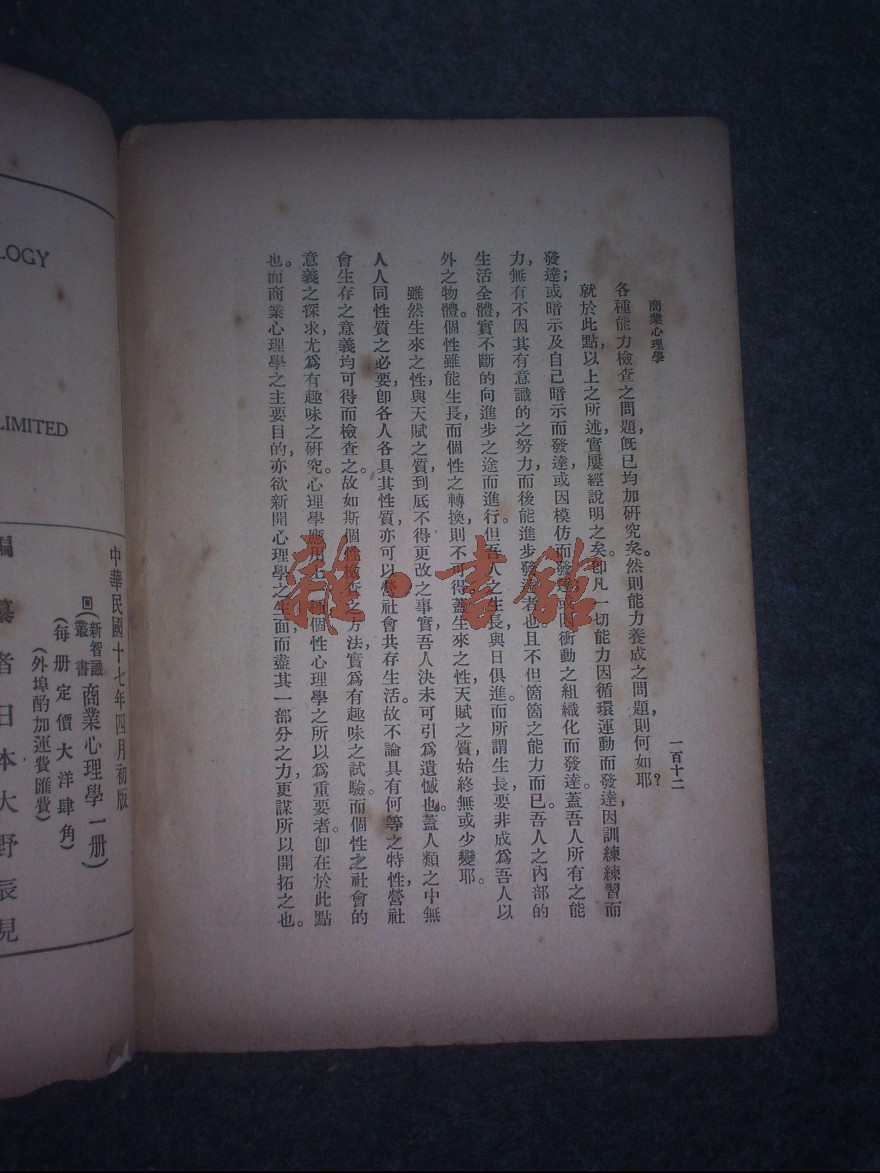 商業心理學
一百十二
各種能力檢查之問題，旣已均加研究矣。然則能力養成之問題，則何如耶？
就於此點，以上之所述，實屢經說明之矣。卽凡一切能力，因循環運動而發達，因訓練練習而
發達；或暗示及自己暗示而發達，或因模仿而發達，或因衝動之組織化而發達。蓋吾人所有之能
力，無有不因其有意識的之努力，而後能進步發達者也。且不但箇箇之能力而已。吾人之內部的
生活全體，實不斷的向進步之途而進行。但吾人之生長，與日俱進。而所謂生長，要非成爲吾人以
外之物體。個性雖能生長，而個性之轉換，則不可得。蓋生來之性，天賦之質，始終無或少變耶。
雖然，生來之性，與天賦之質，到底不得更改之事實，吾人決未可引爲遺憾也。蓋人類之中，無
人人同性質之必要。卽各人各具其性質，亦可以營社會共存生活。故不論具有何等之特性，營社
會生存之意義，均可得而檢查之。故如斯個性檢查之方法，實爲有趣味之試驗。而個性之社會的
意義之探求，尤爲有趣味之研究。心理學應用上，個性心理學之所以爲重要者，卽在於此點
也。而商業心理學之主要目的，亦欲新開心理學之生面，而盡其一部分之力，更謀所以開拓之也。
雜·書館
LIMITED
中華民國十七年四月初版
(新智識叢書)商業心理學一册)
(每册定價大洋肆角)
(外埠酌加運費匯費)
編纂者日本大野辰見